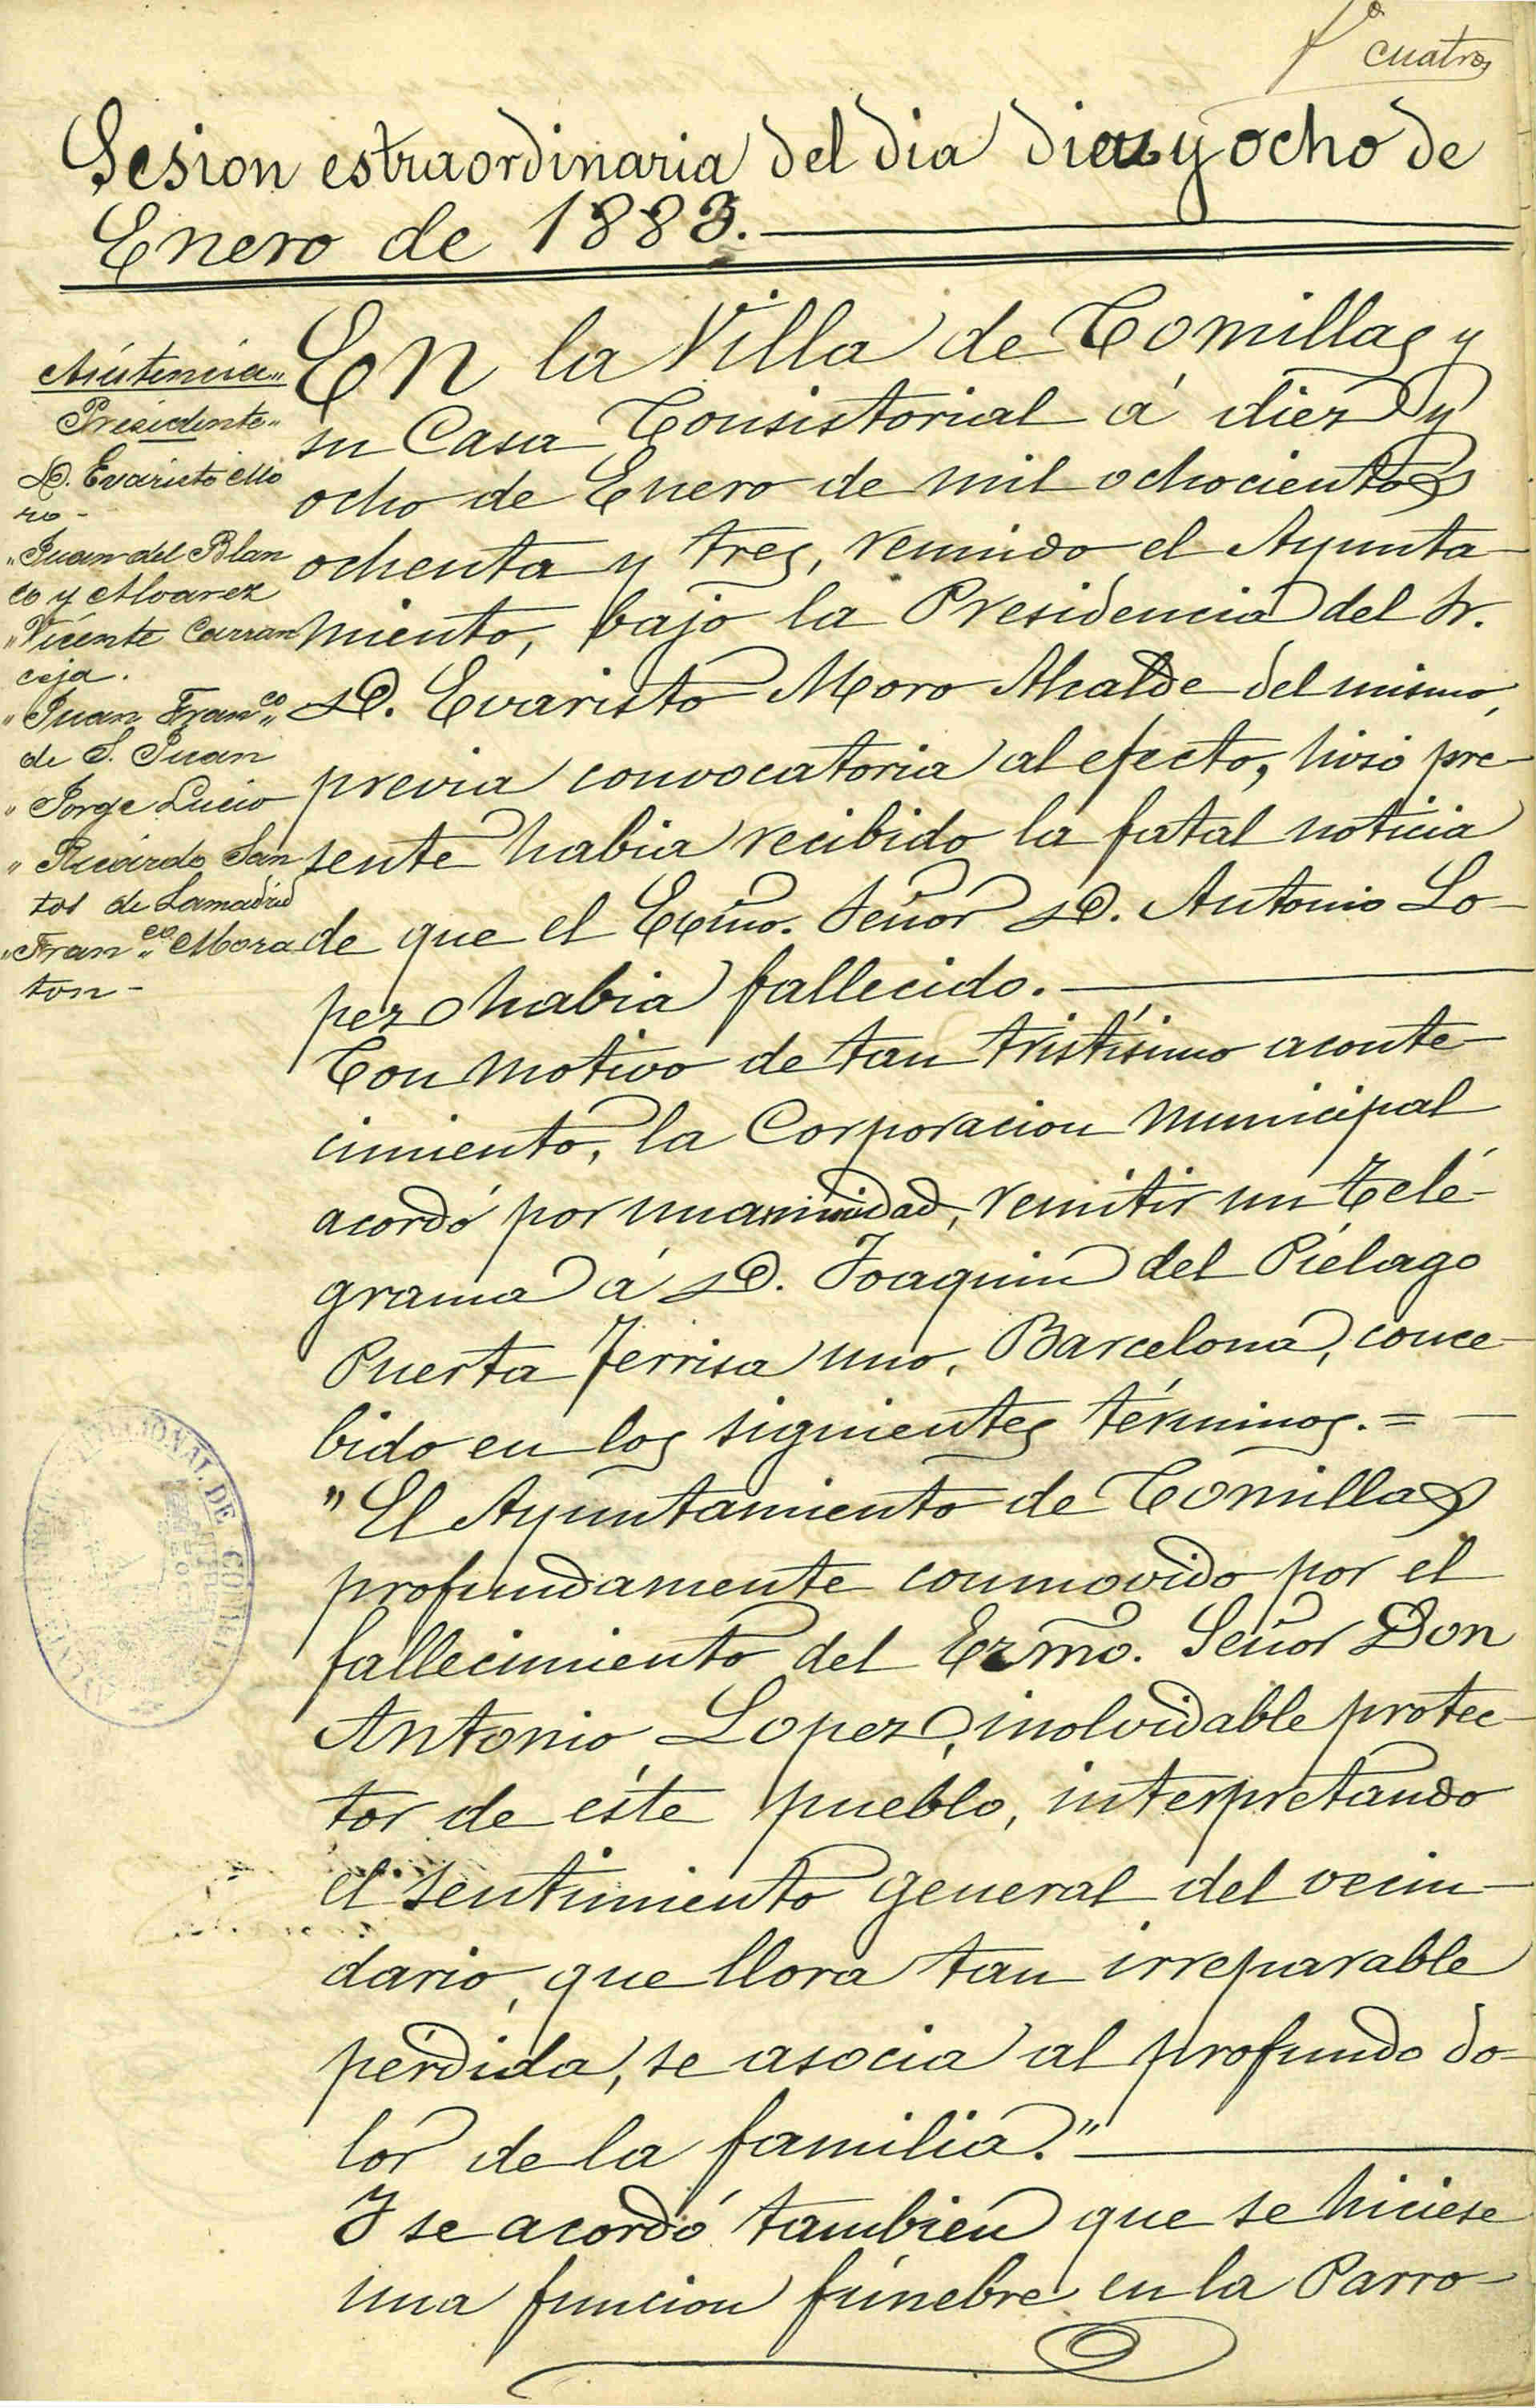 Fº cuatro
Sesion estraordinaria del dia diez y ocho de
Enero de 1883.
Asistencia
Presidente
D. Evaristo Mo
ro -
" Juan del Blan
co y Alvarez
" Vicente Carran
ceja.
" Juan Franco
de S. Juan
" Jorge Lucio
" Ricardo San
tos de Lamadrid
" Franco Mora
ton -
En la Villa de Comillas y
su Casa Consistorial á diez y
ocho de Enero de mil ochocientos
ochenta y tres, reunido el Ayunta-
miento, bajo la Presidencia del Sr.
D. Evaristo Moro Alcalde del mismo,
previa convocatoria al efecto, hizo pre-
sente habia recibido la fatal noticia
de que el Excmo. Señor D. Antonio Lo-
pez habia fallecido.
Con motivo de tan tristísimo aconte-
cimiento, la Corporacion Municipal
acordó por unanimidad, remitir un telé-
grama á D. Joaquin del Piélago
Puerta Ferrisa uno, Barcelona, conce-
bido en los siguientes términos. =
"El Ayuntamiento de Comillas
profundamente conmovido por el
fallecimiento del Ezmo. Señor Don
Antonio Lopez, inolvidable protec-
tor de éste pueblo, interpretando
el sentimiento general del vecin-
dario, que llora tan irreparable
pérdida, se asocia al profundo do-
lor de la familia."
Y se acordó tambien que se hiciese
una funcion fúnebre en la Parro-